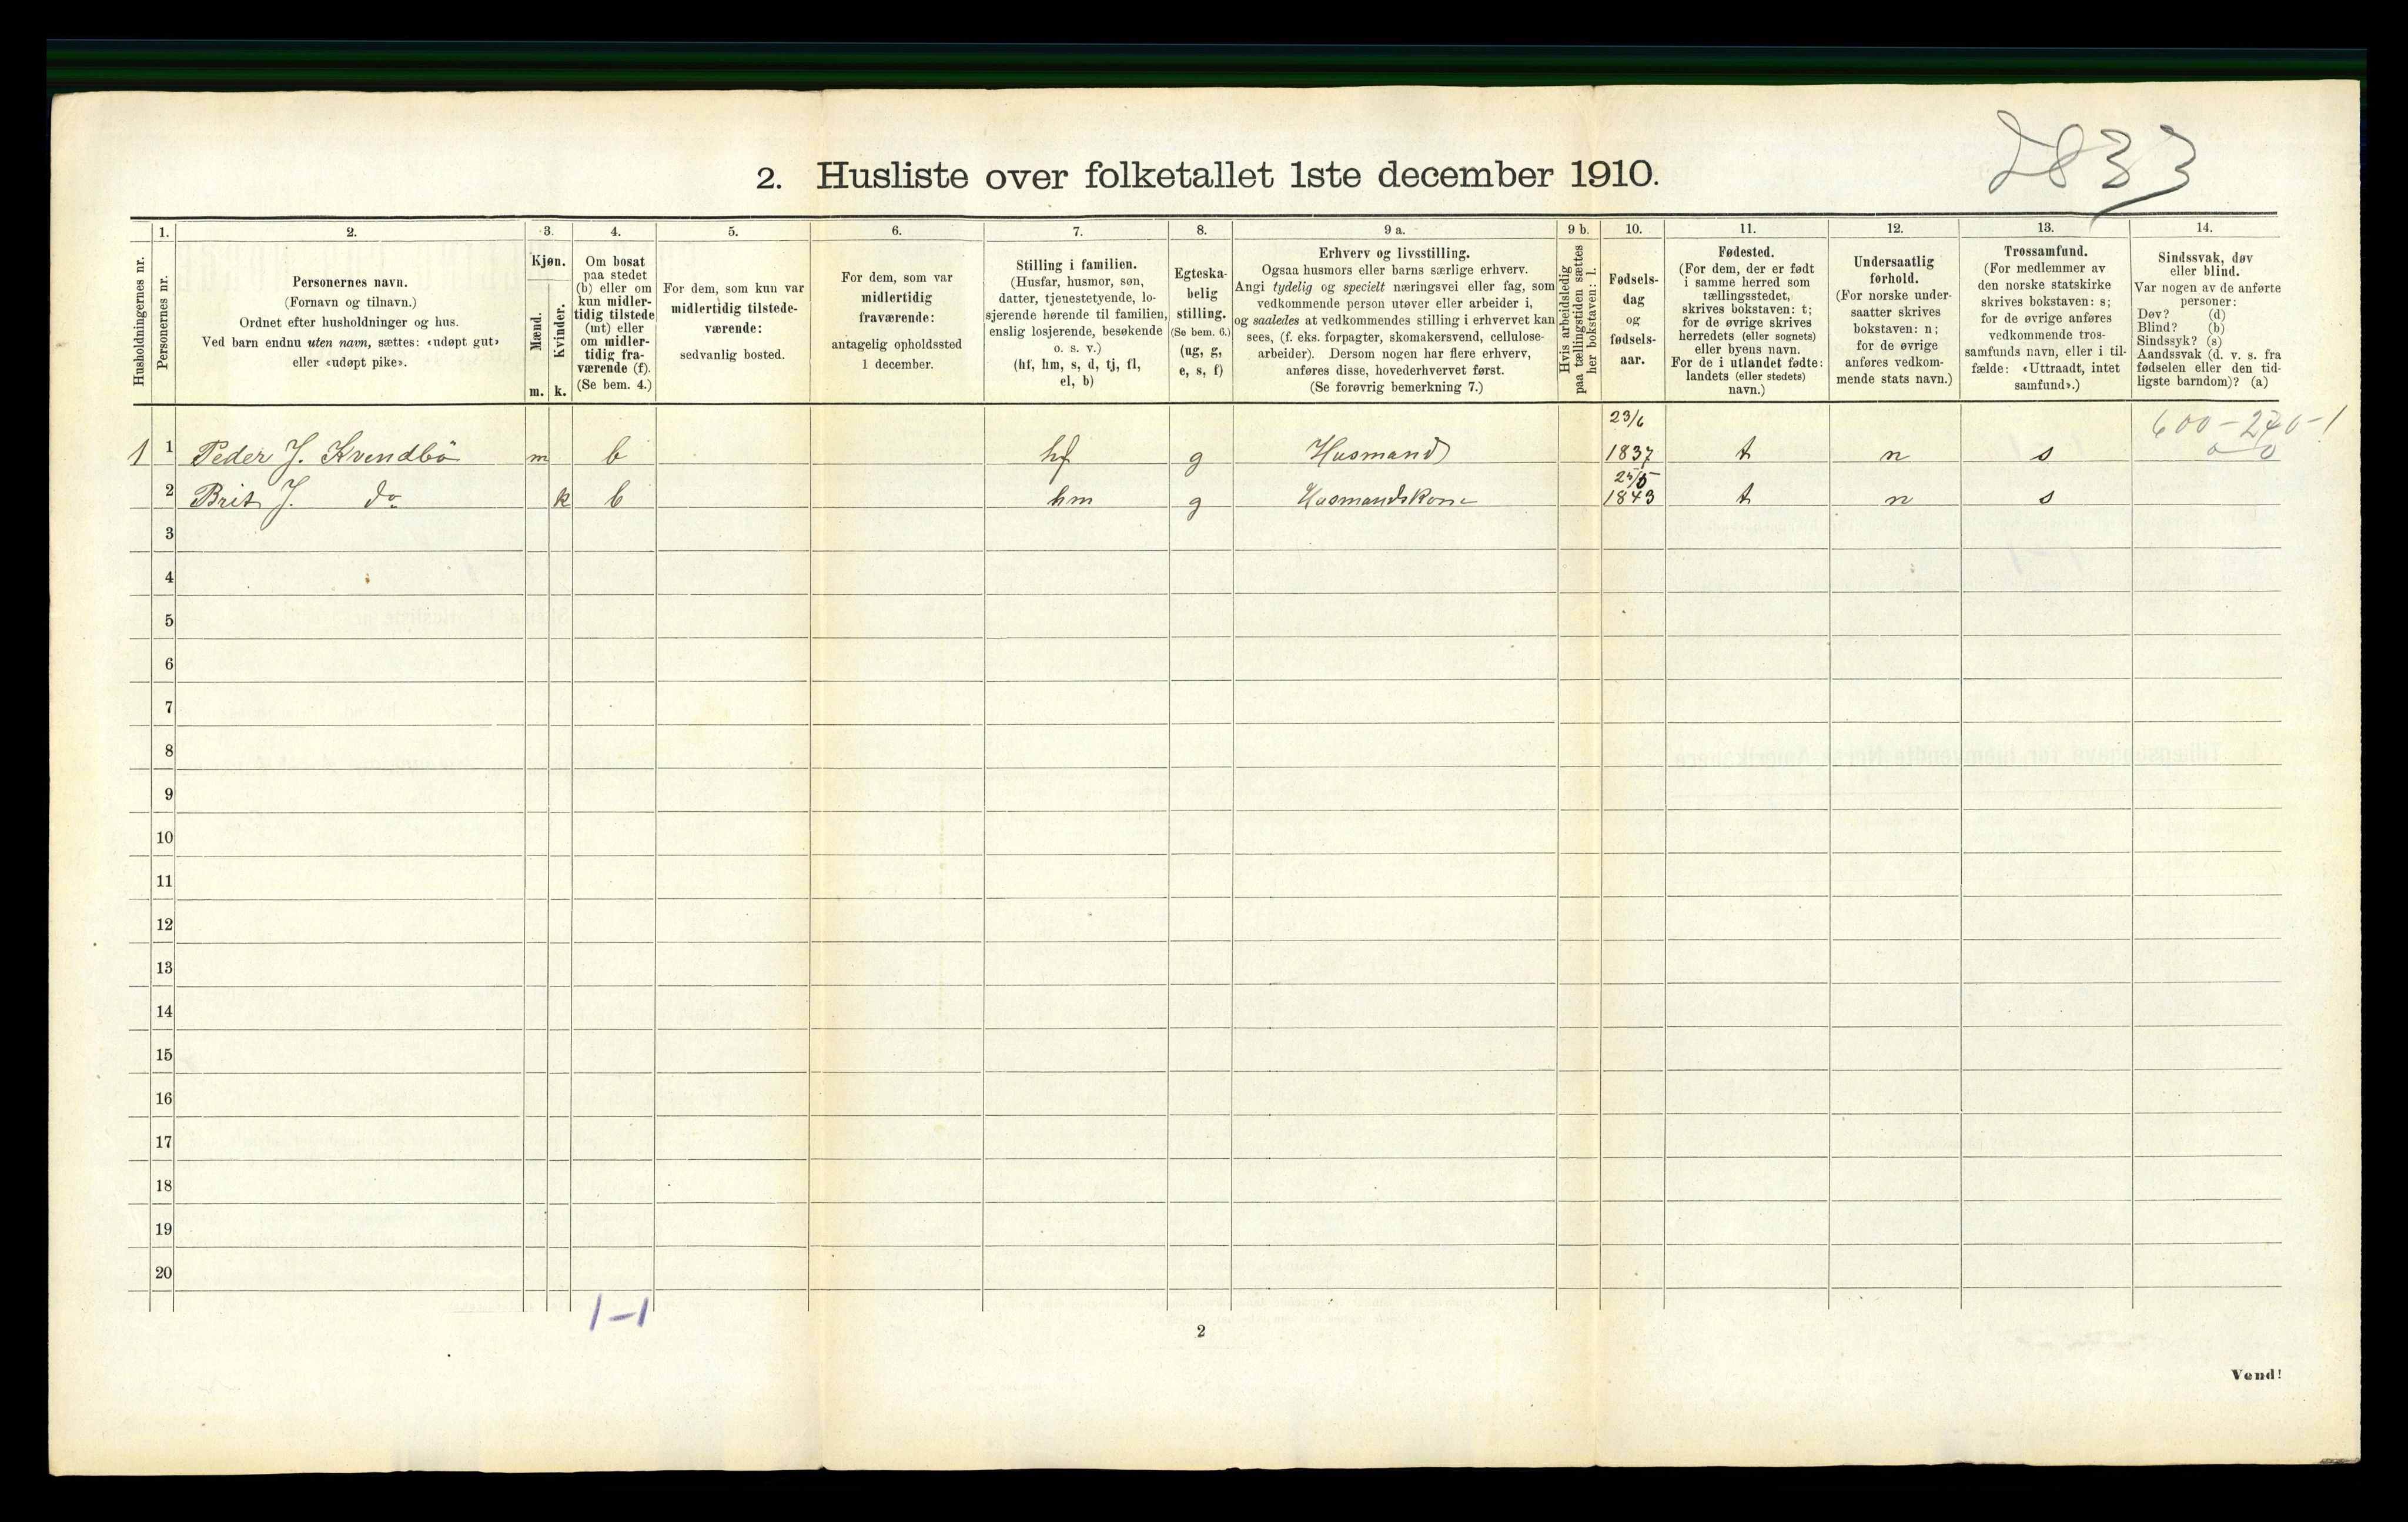 2833
2. Husliste over folketallet 1ste december 1910.
Husholdningernes nr.
1.
Personernes nr.
2.
Personernes navn.
(Fornavn og tilnavn.)
Ordnet efter husholdninger og hus.
Ved barn endnu uten navn, sættes: «udøpt gut»
eller «udøpt pike».
3.
Kjøn.
Mænd.
m.
Kvinder.
k.
4.
Om bosat
paa stedet
(b) eller om
kun midler-
tidig tilstede
(mt) eller
om midler-
tidig fra-
værende (f).
(Se bem. 4.)
5.
For dem, som kun var
midlertidig tilstede-
værende:
sedvanlig bosted.
6.
For dem, som var
midlertidig
fraværende:
antagelig opholdssted
1 december.
7.
Stilling i familien.
(Husfar, husmor, søn,
datter, tjenestetyende, lo-
sjerende hørende til familien,
enslig losjerende, besøkende
o. s. v.)
(hf, hm, s, d, tj, fl,
el, b)
8.
Egteska-
belig
stilling.
(Se bem. 6.)
(ug, g,
e, s, f)
9 a.
Erhverv og livsstilling.
Ogsaa husmors eller barns særlige erhverv.
Angi tydelig og specielt næringsvei eller fag, som
vedkommende person utøver eller arbeider i,
og saaledes at vedkommendes stilling i erhvervet kan
sees, (f. eks. forpagter, skomakersvend, cellulose-
arbeider). Dersom nogen har flere erhverv,
anføres disse, hovederhvervet først.
(Se forøvrig bemerkning 7.)
9 b.
Hvis arbeidsledig
paa tællingstiden sættes
her bokstaven: l.
10.
Fødsels-
dag
og
fødsels-
aar.
11.
Fødested.
(For dem, der er født
i samme herred som
tællingsstedet,
skrives bokstaven: t;
for de øvrige skrives
herredets (eller sognets)
eller byens navn.
For de i utlandet fødte:
landets (eller stedets)
navn.)
12.
Undersaatlig
forhold.
(For norske under-
saatter skrives
bokstaven: n;
for de øvrige
anføres vedkom-
mende stats navn.)
13.
Trossamfund.
(For medlemmer av
den norske statskirke
skrives bokstaven: s;
for de øvrige anføres
vedkommende tros-
samfunds navn, eller i til-
fælde: «Uttraadt, intet
samfund».)
14.
Sindssvak, døv
eller blind.
Var nogen av de anførte
personer:
Døv? (d)
Blind? (b)
Sindssyk? (s)
Aandssvak (d. v. s. fra
fødselen eller den tid-
ligste barndom)? (a)
600-270-1
0 0
1 1 Peder J. Kvendbö m b hf g Husmand 23/6 1837 t n s
2 Brit J. do k b hm g Husmandskone 1843 t n s
3
4
5
6
7
8
9
10
11
12
13
14
15
16
17
18
19
20
1-1
2
Vend!